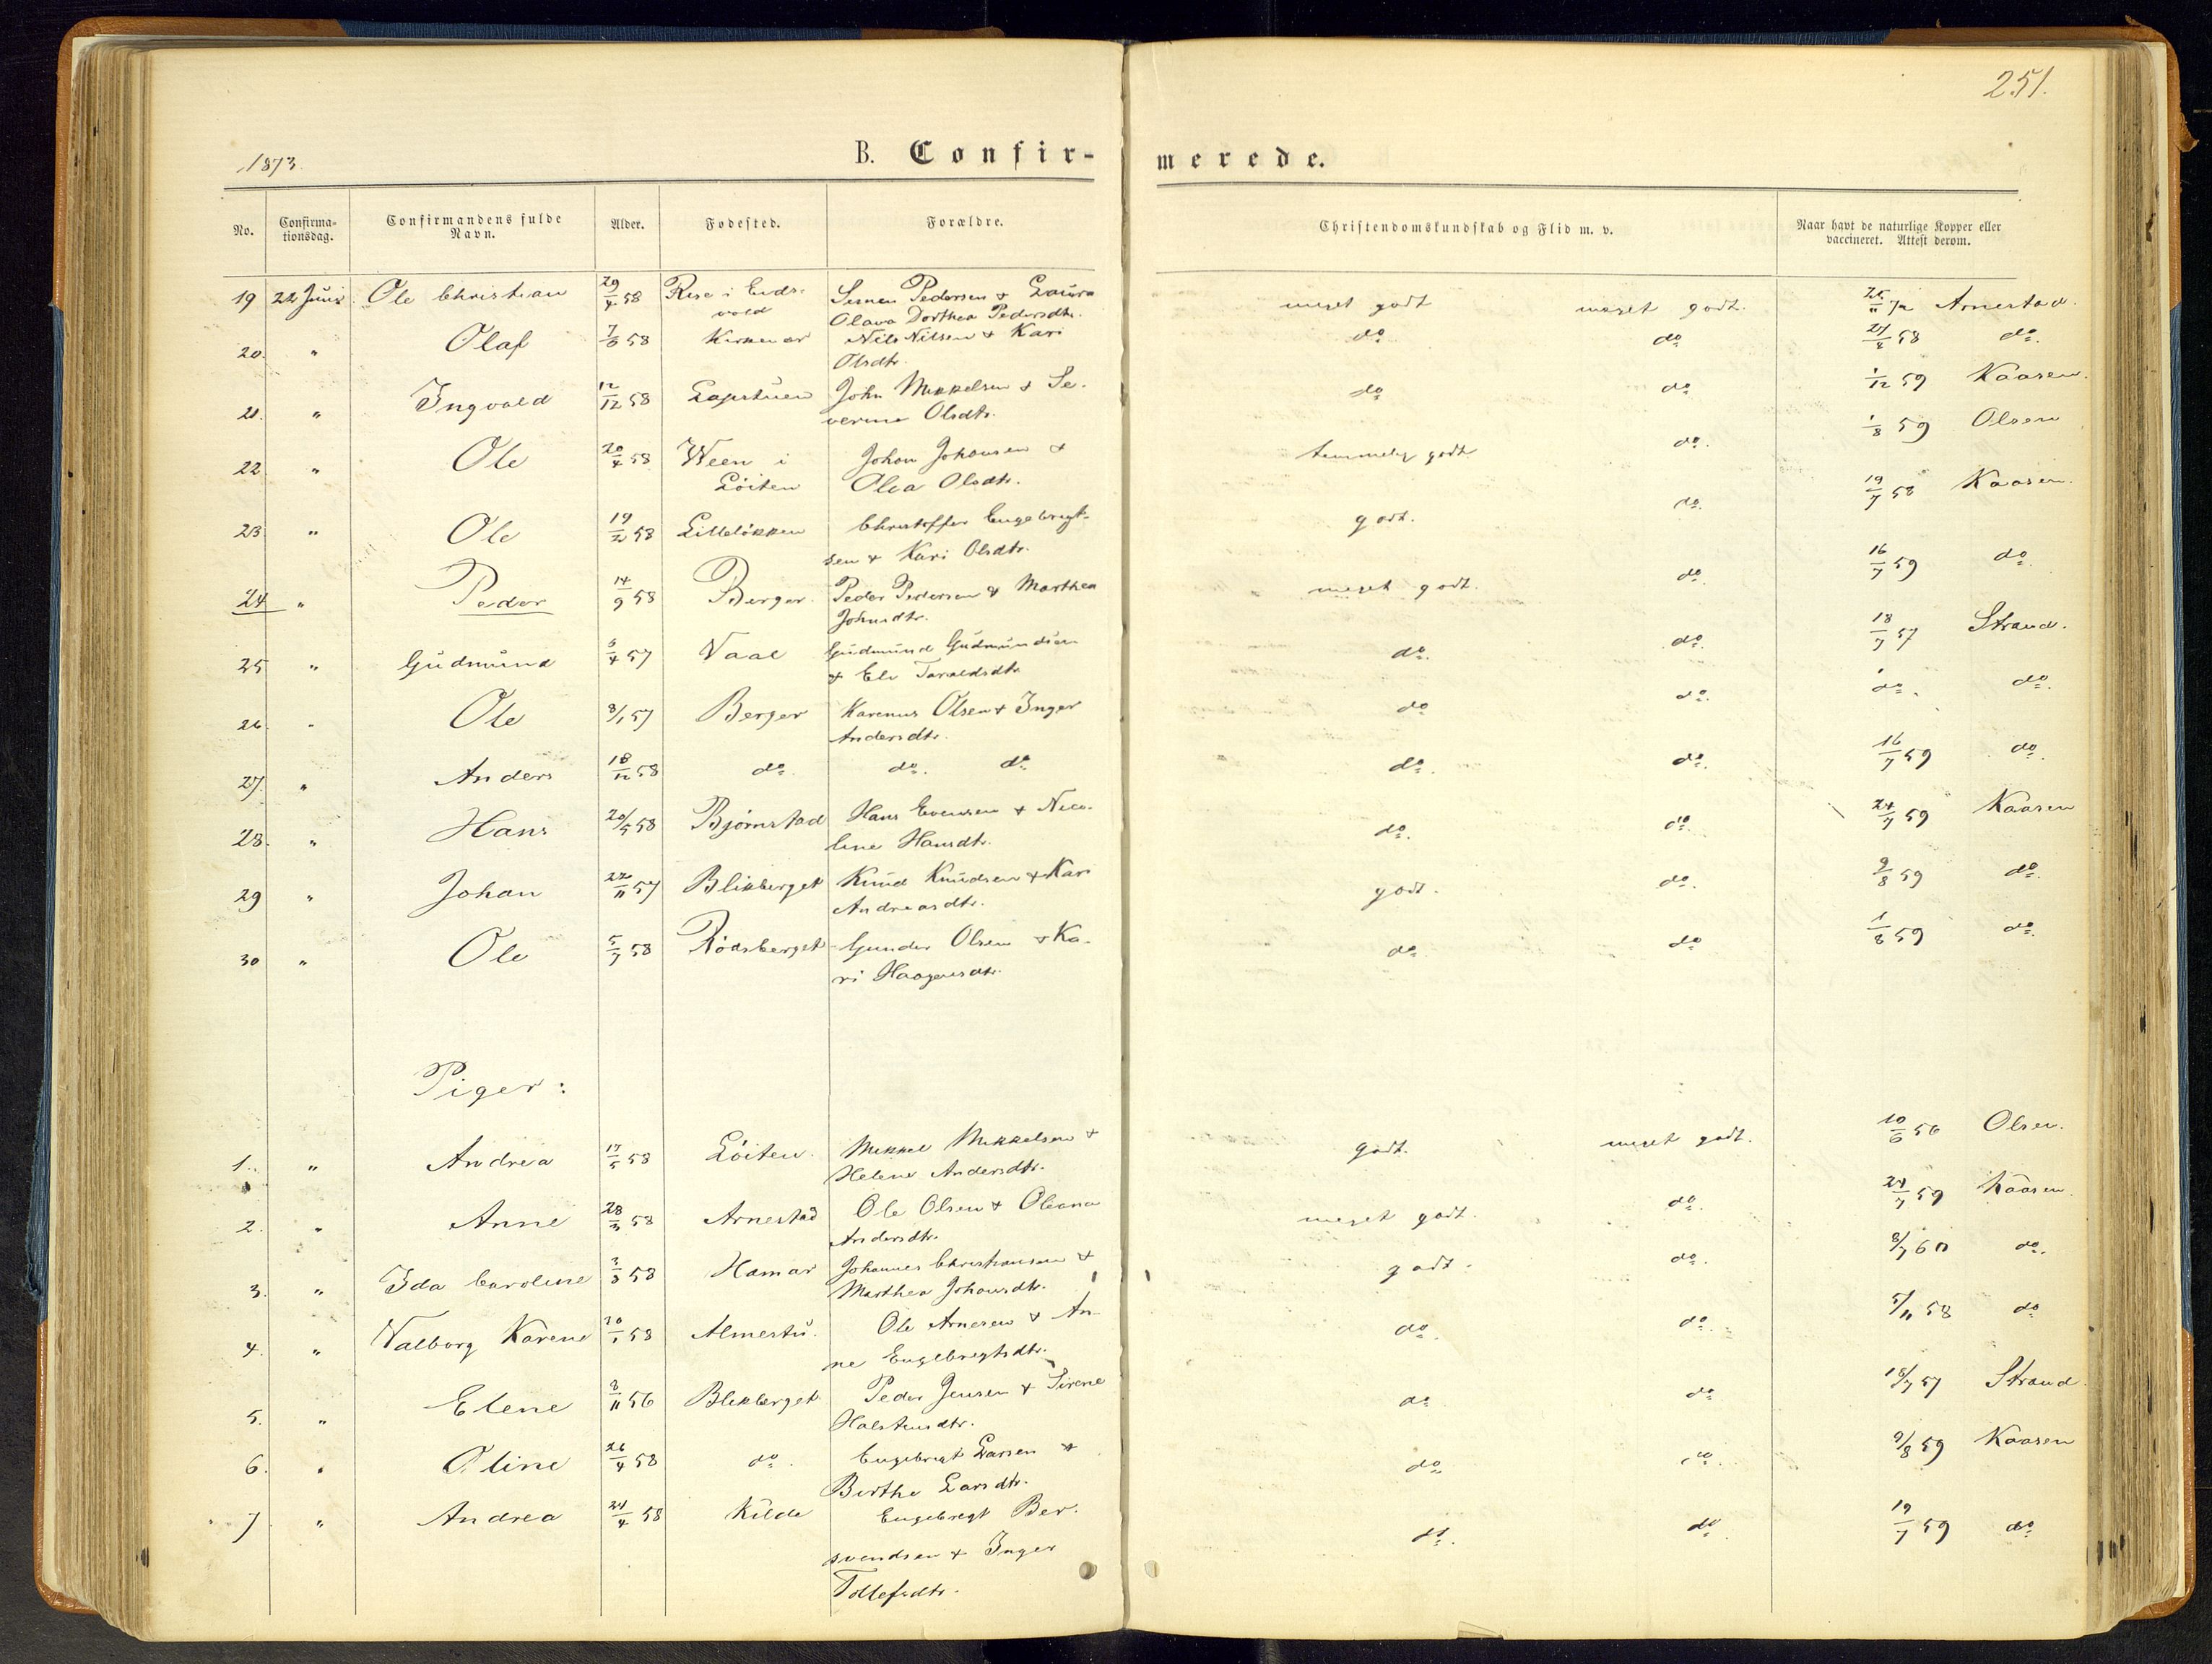 251.
1873.
B. Confir-
merede.
No.
Confirma-
tionsdag.
Confirmandens fulde
Navn.
Alder.
Fødested.
Forældre.
Christendomskundskab og Flid m. v.
Naar havt de naturlige Kopper eller
vaccineret. Attest derom.
19 22 Juni Ole Christian 29/4 58 i Eids- Pedersen & Laura meget godt meget godt. Arnestad.
vold Olava Dorthea Pedersdtr.
20. " Olaf 58 Nils Nilsen & Kari do do 58 do.
Olsdtr.
21. " Ingvald 12/12 58 John Mikkelsen & Se- do do 1/12 59 Kaasen.
verine Olsdtr.
22 " Ole 20/4 58 Ween i Johan Johansen & temmelig godt do. 1/8 59 Olsen
Løiten Olea Olsdtr.
23 " Ole 19/2 58 Lilleløkken Christoffer Engebrigt- godt. do. 19/7 58 Kaasen.
sen & Kari Olsdtr.
24 " Peder 14/9 58 Berger Peder Pedersen & Marthea meget godt. do. 16/7 59 do
Johnsdtr.
25 " Gudmund 57 Vaal Gudmund Gudmundsen do. do. 18/7 57 Strand.
& Eli Taraldsdtr.
26 " Ole 8/1 57 Berger Karenus Olsen & Inger do do. do. do.
Andersdtr.
27. " Anders 18/12 58 do. do. do do. do. 16/7 59 do
28. " Hans 20/5 58 Bjørnstad Hans Evensen & Nico- do. do. 24/7 59 Kaasen
line Hansdtr.
29 " Johan 22/11 57 Blikberget Knud Knudsen & Kari godt. do. 9/8 59 do.
Andreasdtr.
30 " Ole 5/7 58 Rødsberget Gunder Olsen & Ka- do. do 1/8 59 do.
ri Haagensdtr.
Piger:
1. " Andrea 17/5 58 Løiten. Mikkel Mikkelsen & godt. meget godt. Olsen.
Helene Andersdtr.
2. " Anne 28/3 58 Arnestad Ole Olsen & Oleana meget godt. do. 24/7 59 Kaasen.
Andersdtr.
3. " Ida Caroline 58 Hamar Johannes Christiansen & godt. do. 8/7 60 do.
Marthea Johansdtr.
4. " Valborg Karene 58 Almestu. Ole Arnesen & An- do. do. 5/11 58 do
ne Engebregtsdtr.
5. " Elene 56 Blikberget Peder Jensen & Sirene do do. 18/7 57 Strand.
Halstensdtr.
6. " Oline 26/4 58 do. Engebregt Larsen & do. do. 9/8 59 Kaasen
Berthe Larsdtr.
7 " Andrea 24/4 58 Kilde Engebregt Ber- do. do. 19/7 59 do.
svendsen & Inger
Tollefsdtr.